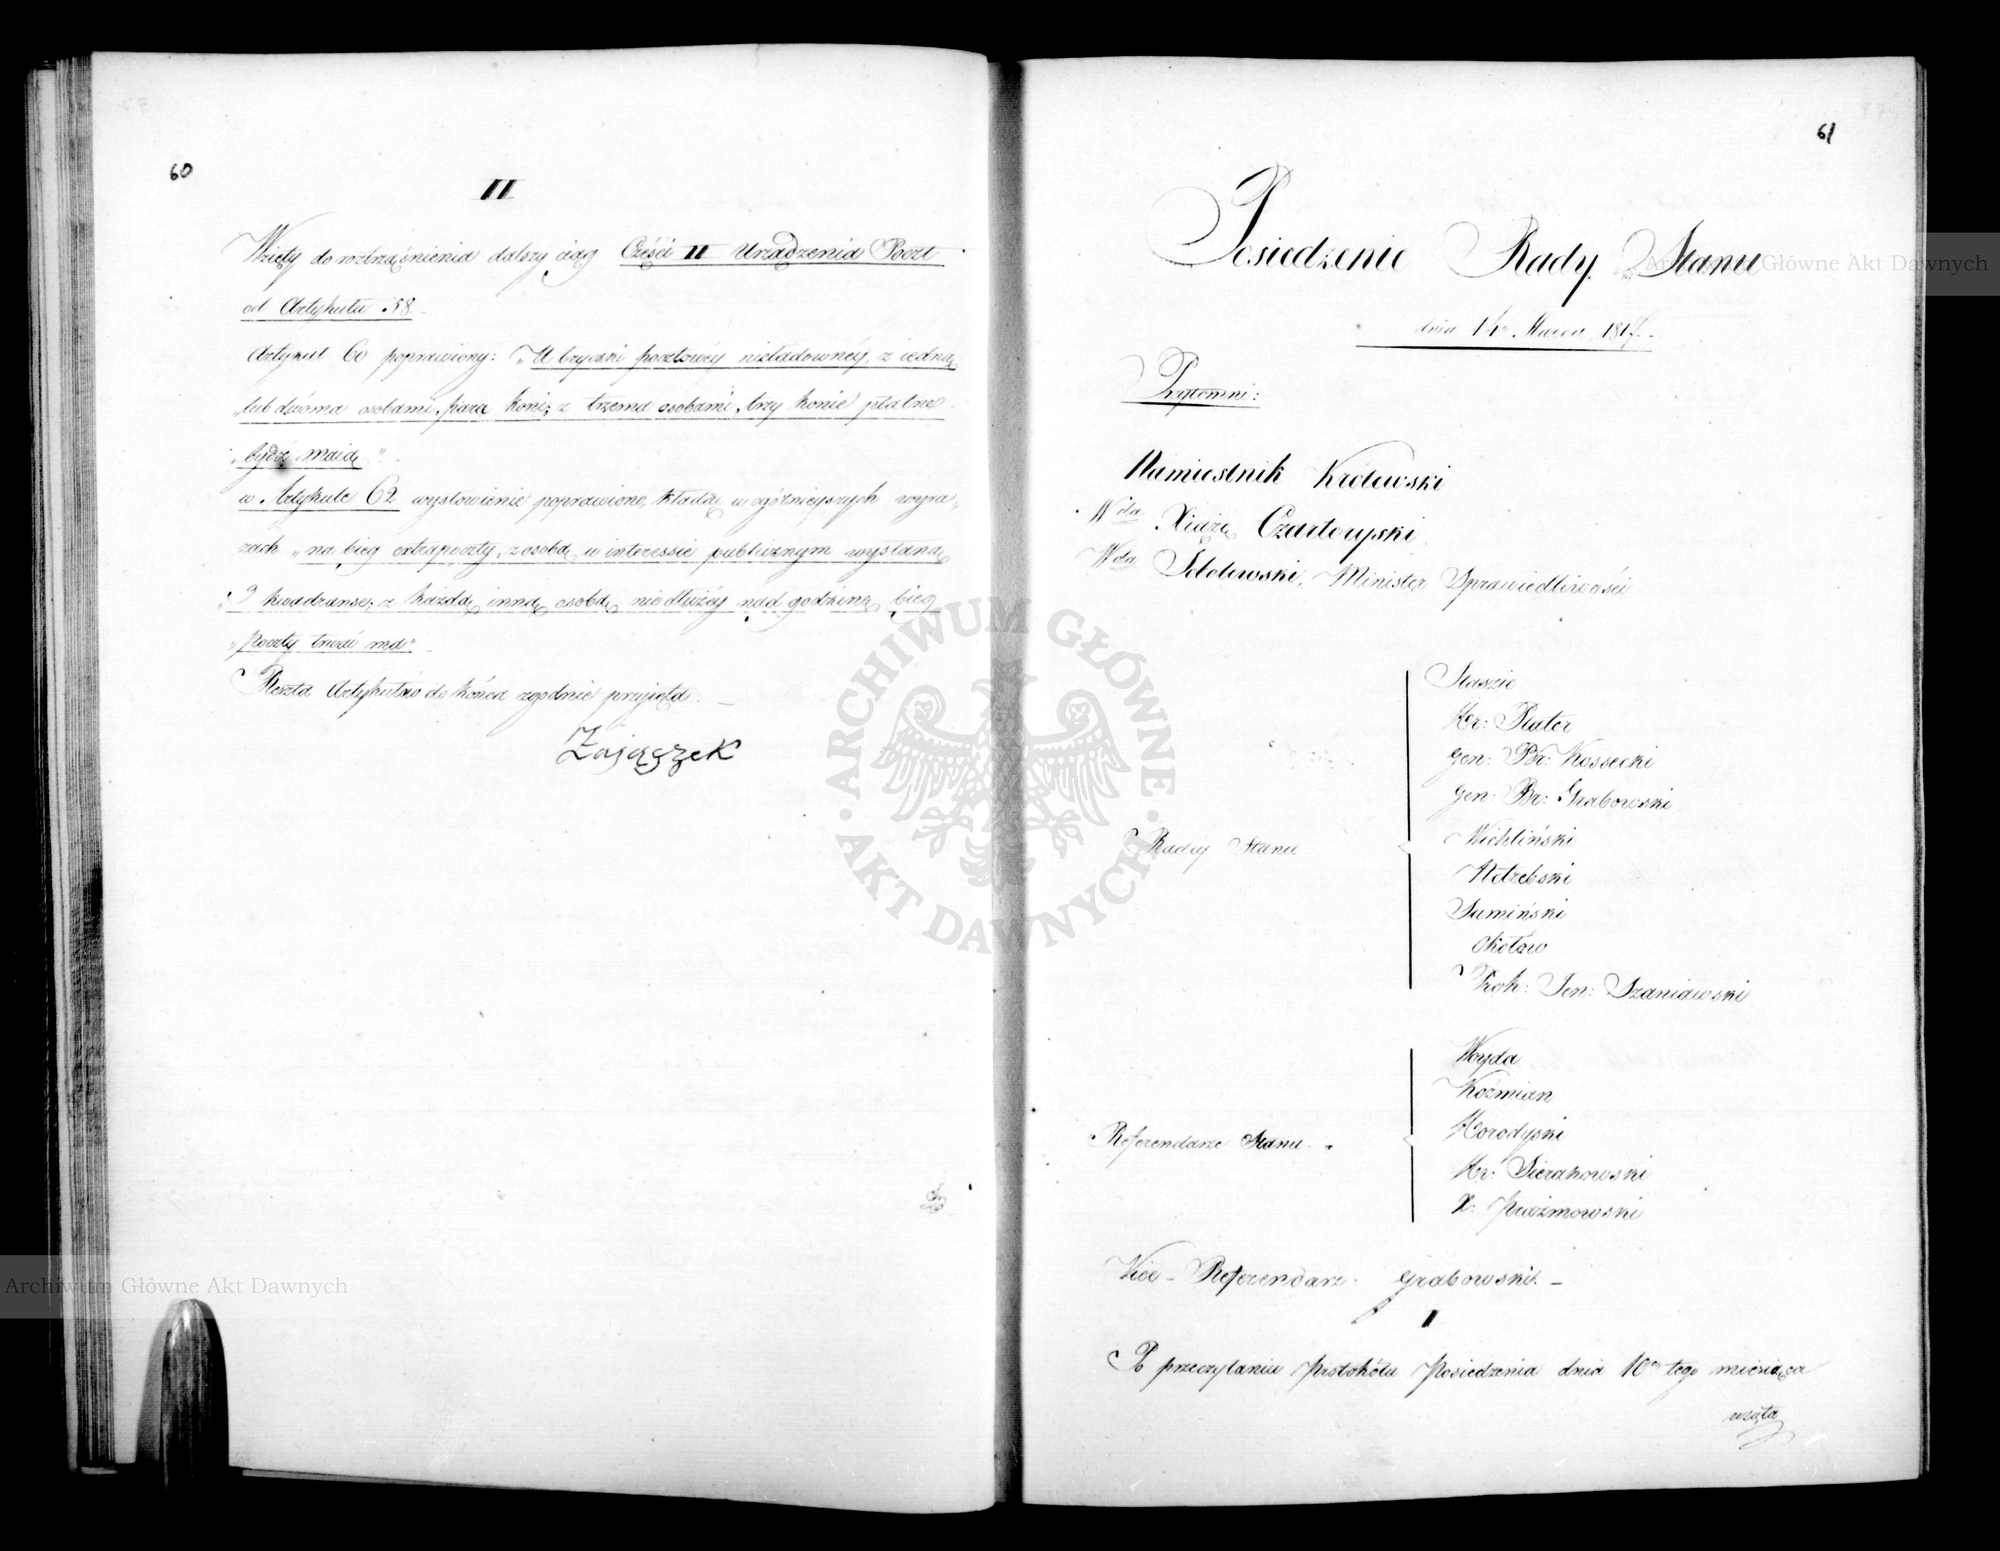 60
II
Wzięty do roztrząśnienia dalszy ciąg Części II Urządzenia Poczt
od Artykułu 58.
Artykuł 60 poprawiony: „U bryczki pocztowéy nieładownéy, z iedną
„lub dwoma osobami, para koni; z trzema osobami, trzy konie płatne
„bydź maią".
w Artykule 62 wysłowienie poprawione, kładąc w ogólnieyszych wyra-
zach „na bieg extrapoczty, z osobą w interessie publicznym wysłaną
„3 kwadranse; z każdą inną osobą nie dłużéy nad godzinę bieg
„Poczty trwać ma".
Reszta Artykułów do końca zgodnie przyięta.
Zajączek
61
Posiedzenie Rady Stanu
dnia 14 Marca 1817.
Przytomni:
Namiestnik Królewski
Wda Xiążę Czartoryski
Wda Sobolewski, Minister Sprawiedliwości
Radcy Stanu
Staszic
Hr: Plater
Gen: Br: Kossecki
Gen: Br: Grabowski
Wichliński
Netrebski
Sumiński
Okołow
Prok: Jen: Szaniawski
Referendarze Stanu
Woyda
Koźmian
Horodyski
Hr: Sierakowski
X: Prażmowski
Vice-Referendarz: Grabowski.
I
Po przeczytaniu Protokółu Posiedzenia dnia 10go tego miesiąca
wzięta
Archiwum Główne Akt Dawnych
ARCHIWUM GŁÓWNE AKT DAWNYCH
Archiwum Główne Akt Dawnych